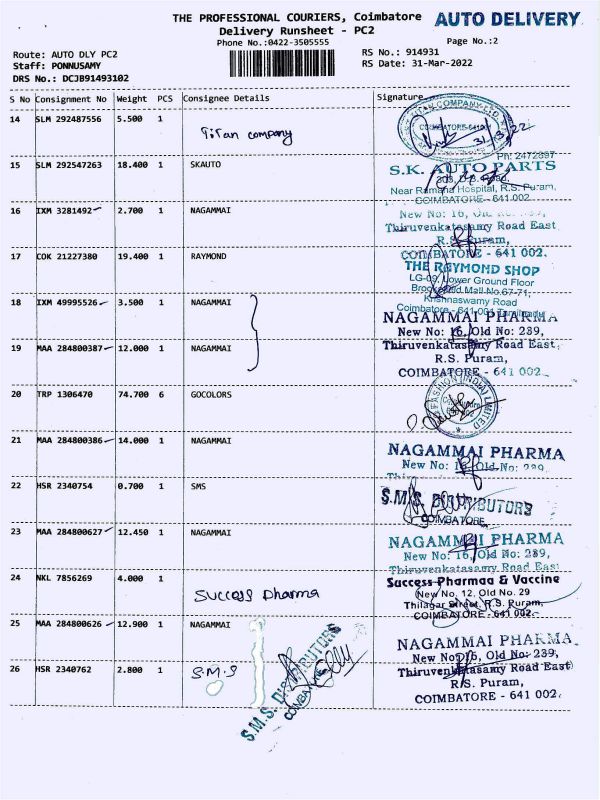 THE PROFESSIONAL COURIERS, Coimbatore
AUTO DELIVERY
Delivery Runsheet - PC2
Phone No.:0422-3505555
Page No.:2
Route: AUTO DLY PC2
Staff: PONNUSAMY
DRS No.: DCJB91493102
RS No.: 914931
RS Date: 31-Mar-2022
S No Consignment No Weight PCS Consignee Details Signature
14 SLM 292487556 5.500 1 Titan company
TITAN COMPANY LTD
31/3/22
15 SLM 292547263 18.400 1 SKAUTO
Ph: 2472897
S.K. AUTO PARTS
Near Ramana Hospital, R.S. Puram,
COIMBATORE - 641 002
16 IXM 3281492 2.700 1 NAGAMMAI
New No: 16,
Thiruvenkatasamy Road East
R.S. Puram,
COIMBATORE - 641 002.
17 COK 21227380 19.400 1 RAYMOND
THE RAYMOND SHOP
LG-09, Lower Ground Floor
Brookefield Mall No.67-71,
Krishnaswamy Road
Coimbatore - 641 001 Tamilnadu
18 IXM 49995526 3.500 1 NAGAMMAI
NAGAMMAI PHARMA
New No: 16, Old No: 239,
19 MAA 284800387 12.000 1 NAGAMMAI
Thiruvenkatasamy Road East,
R.S. Puram,
COIMBATORE - 641 002
20 TRP 1306470 74.700 6 GOCOLORS
FASHION (INDIA) LIMITED
21 MAA 284800386 14.000 1 NAGAMMAI
NAGAMMAI PHARMA
New No: 16, Old No: 239,
22 HSR 2340754 0.700 1 SMS
S.M.S. DISTRIBUTORS
COIMBATORE
23 MAA 284800627 12.450 1 NAGAMMAI
NAGAMMAI PHARMA
New No: 16, Old No: 239,
Thiruvenkatasamy Road East
24 NKL 7856269 4.000 1 Success pharma
Success Pharmaa & Vaccine
New No. 12, Old No. 29
Thilagar Street, R.S. Puram,
COIMBATORE - 641 002.
25 MAA 284800626 12.900 1 NAGAMMAI
NAGAMMAI PHARMA
New No: 16, Old No: 239,
Thiruvenkatasamy Road East
R.S. Puram,
COIMBATORE - 641 002.
26 HSR 2340762 2.800 1 S.M.S
S.M.S. DISTRIBUTORS
COIMBATORE